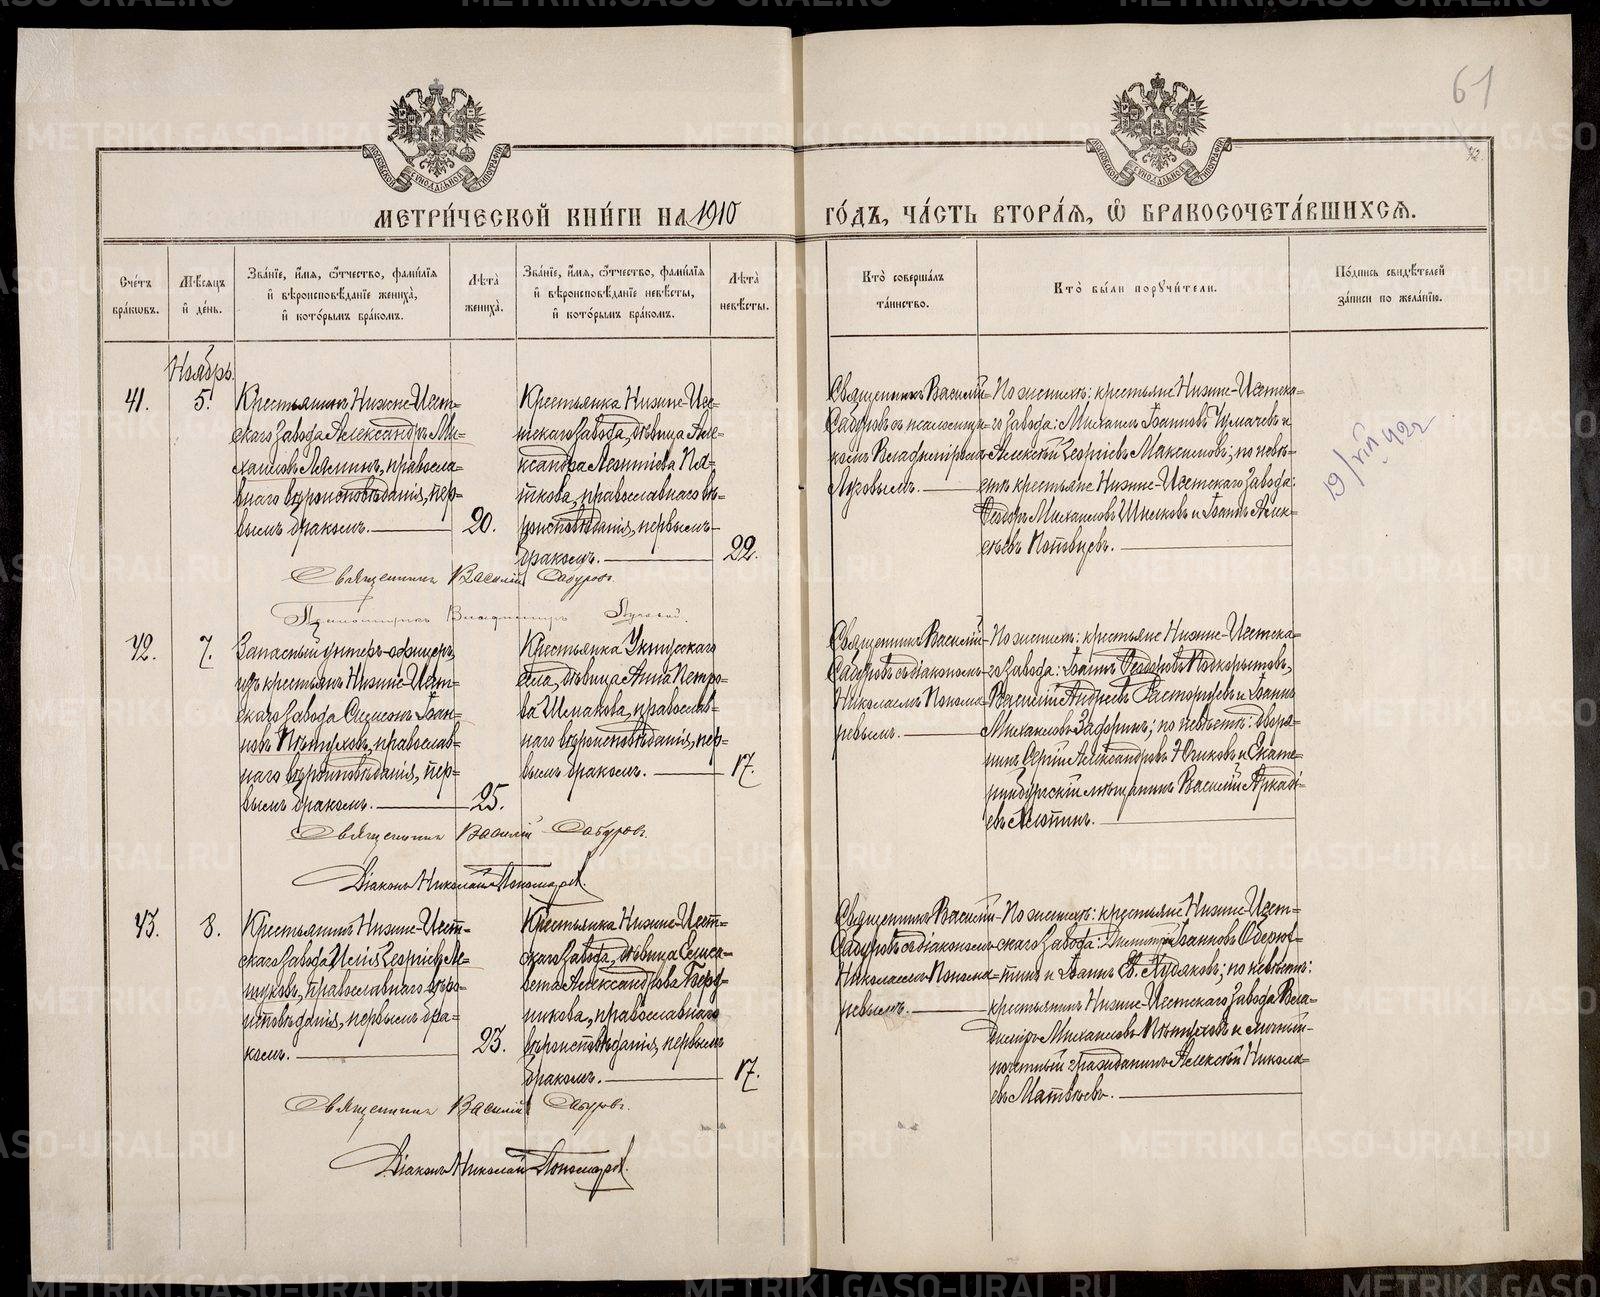 61
42.
МЕТРИ́ЧЕСКОЙ КНИ́ГИ НА 1910 ГО́ДЪ, ЧА́СТЬ ВТОРА́Я, Ѿ БРАКОСОЧЕТА́ВШИХСЯ.
Сче́тъ бра́ковъ.
Мѣ́сяцъ и҆ де́нь.
Зва́нїе, и҆́мя, ѻ҆́тчество, фамѝлїѧ
и҆ вѣроисповѣ́данїе жениха̀,
и҆ кото́рымъ бра́комъ.
Лѣ́та жениха̀.
Зва́нїе, и҆́мя, ѻ҆́тчество, фамѝлїѧ
и҆ вѣроисповѣ́данїе невѣ́сты,
и҆ кото́рымъ бра́комъ.
Лѣ́та невѣ́сты.
Кто̀ соверша́лъ
та́инство.
Кто̀ бы́ли порꙋчи́тели.
По́дпись свидѣ́телей
за́писи по жела́нїю.
Ноябрь.
41.
5.
Крестьянинъ Нижне-Исет-
скаго завода Александръ Ми-
хаиловъ Лялинъ, правосла-
внаго вѣроисповѣданія, пер-
вымъ бракомъ.
20.
Крестьянка Нижне-Исе-
тскаго завода, дѣвица Але-
ксандра Леонтіева
православнаго вѣ-
роисповѣданія, первымъ
бракомъ.
22.
Священникъ Василій
Сабуровъ съ псаломщи-
комъ Владиміромъ
Луговымъ.
По женихѣ: крестьяне Нижне-Исетска-
го завода: Михаилъ Іоанновъ Чумачевъ и
Алексѣй Георгіевъ Максимовъ; по невѣ-
стѣ крестьяне Нижне-Исетскаго завода:
Ѳеодоръ Михаиловъ и Іоаннъ Алек-
сѣевъ
19/VIII 422
Священникъ Василій Сабуровъ.
Псаломщикъ Владиміръ Луговой.
42.
7.
Запасный унтеръ-офицеръ,
изъ крестьянъ Нижне-Исет-
скаго завода Симеонъ Іоан-
новъ Пѣтуховъ, православ-
наго вѣроисповѣданія, пер-
вымъ бракомъ.
25.
Крестьянка Уктусскаго
села, дѣвица Анна Петро-
ва православ-
наго вѣроисповѣданія, пер-
вымъ бракомъ.
17.
Священникъ Василій
Сабуровъ съ діакономъ
Николаемъ Понома-
ревымъ.
По женихѣ: крестьяне Нижне-Исетска-
го завода: Іоаннъ Ѳеодоровъ Подкорытовъ,
Василій Андреевъ Расторгуевъ и Іоаннъ
Михаиловъ Задоринъ; по невѣстѣ: дворя-
нинъ Сергій Александровъ и Екате-
ринбургскій мѣщанинъ Василій Аркадi-
евъ
Священникъ Василій Сабуровъ.
Діаконъ Николай Пономаревъ.
43.
8.
Крестьянинъ Нижне-Исет-
скаго завода Илія Георгіевъ Ме-
православнаго вѣро-
исповѣданія, первымъ бра-
комъ.
23.
Крестьянка Нижне-Исет-
скаго завода, дѣвица Елиса-
вета Александрова Берд-
никова, православнаго
вѣроисповѣданія, первымъ
бракомъ.
17.
Священникъ Василій
Сабуровъ съ діакономъ
Николаемъ Понома-
ревымъ.
По женихѣ: крестьяне Нижне-Исет-
скаго завода: Димитрій Іоанновъ
и Іоаннъ Худяковъ; по невѣстѣ:
крестьянинъ Нижне-Исетскаго завода Вла-
диміръ Михаиловъ Пѣтуховъ и личный
почетный гражданинъ Алексѣй Никола-
евъ Матвѣевъ.
Священникъ Василій Сабуровъ.
Діаконъ Николай Пономаревъ.
METRIKI.GASO-URAL.RU